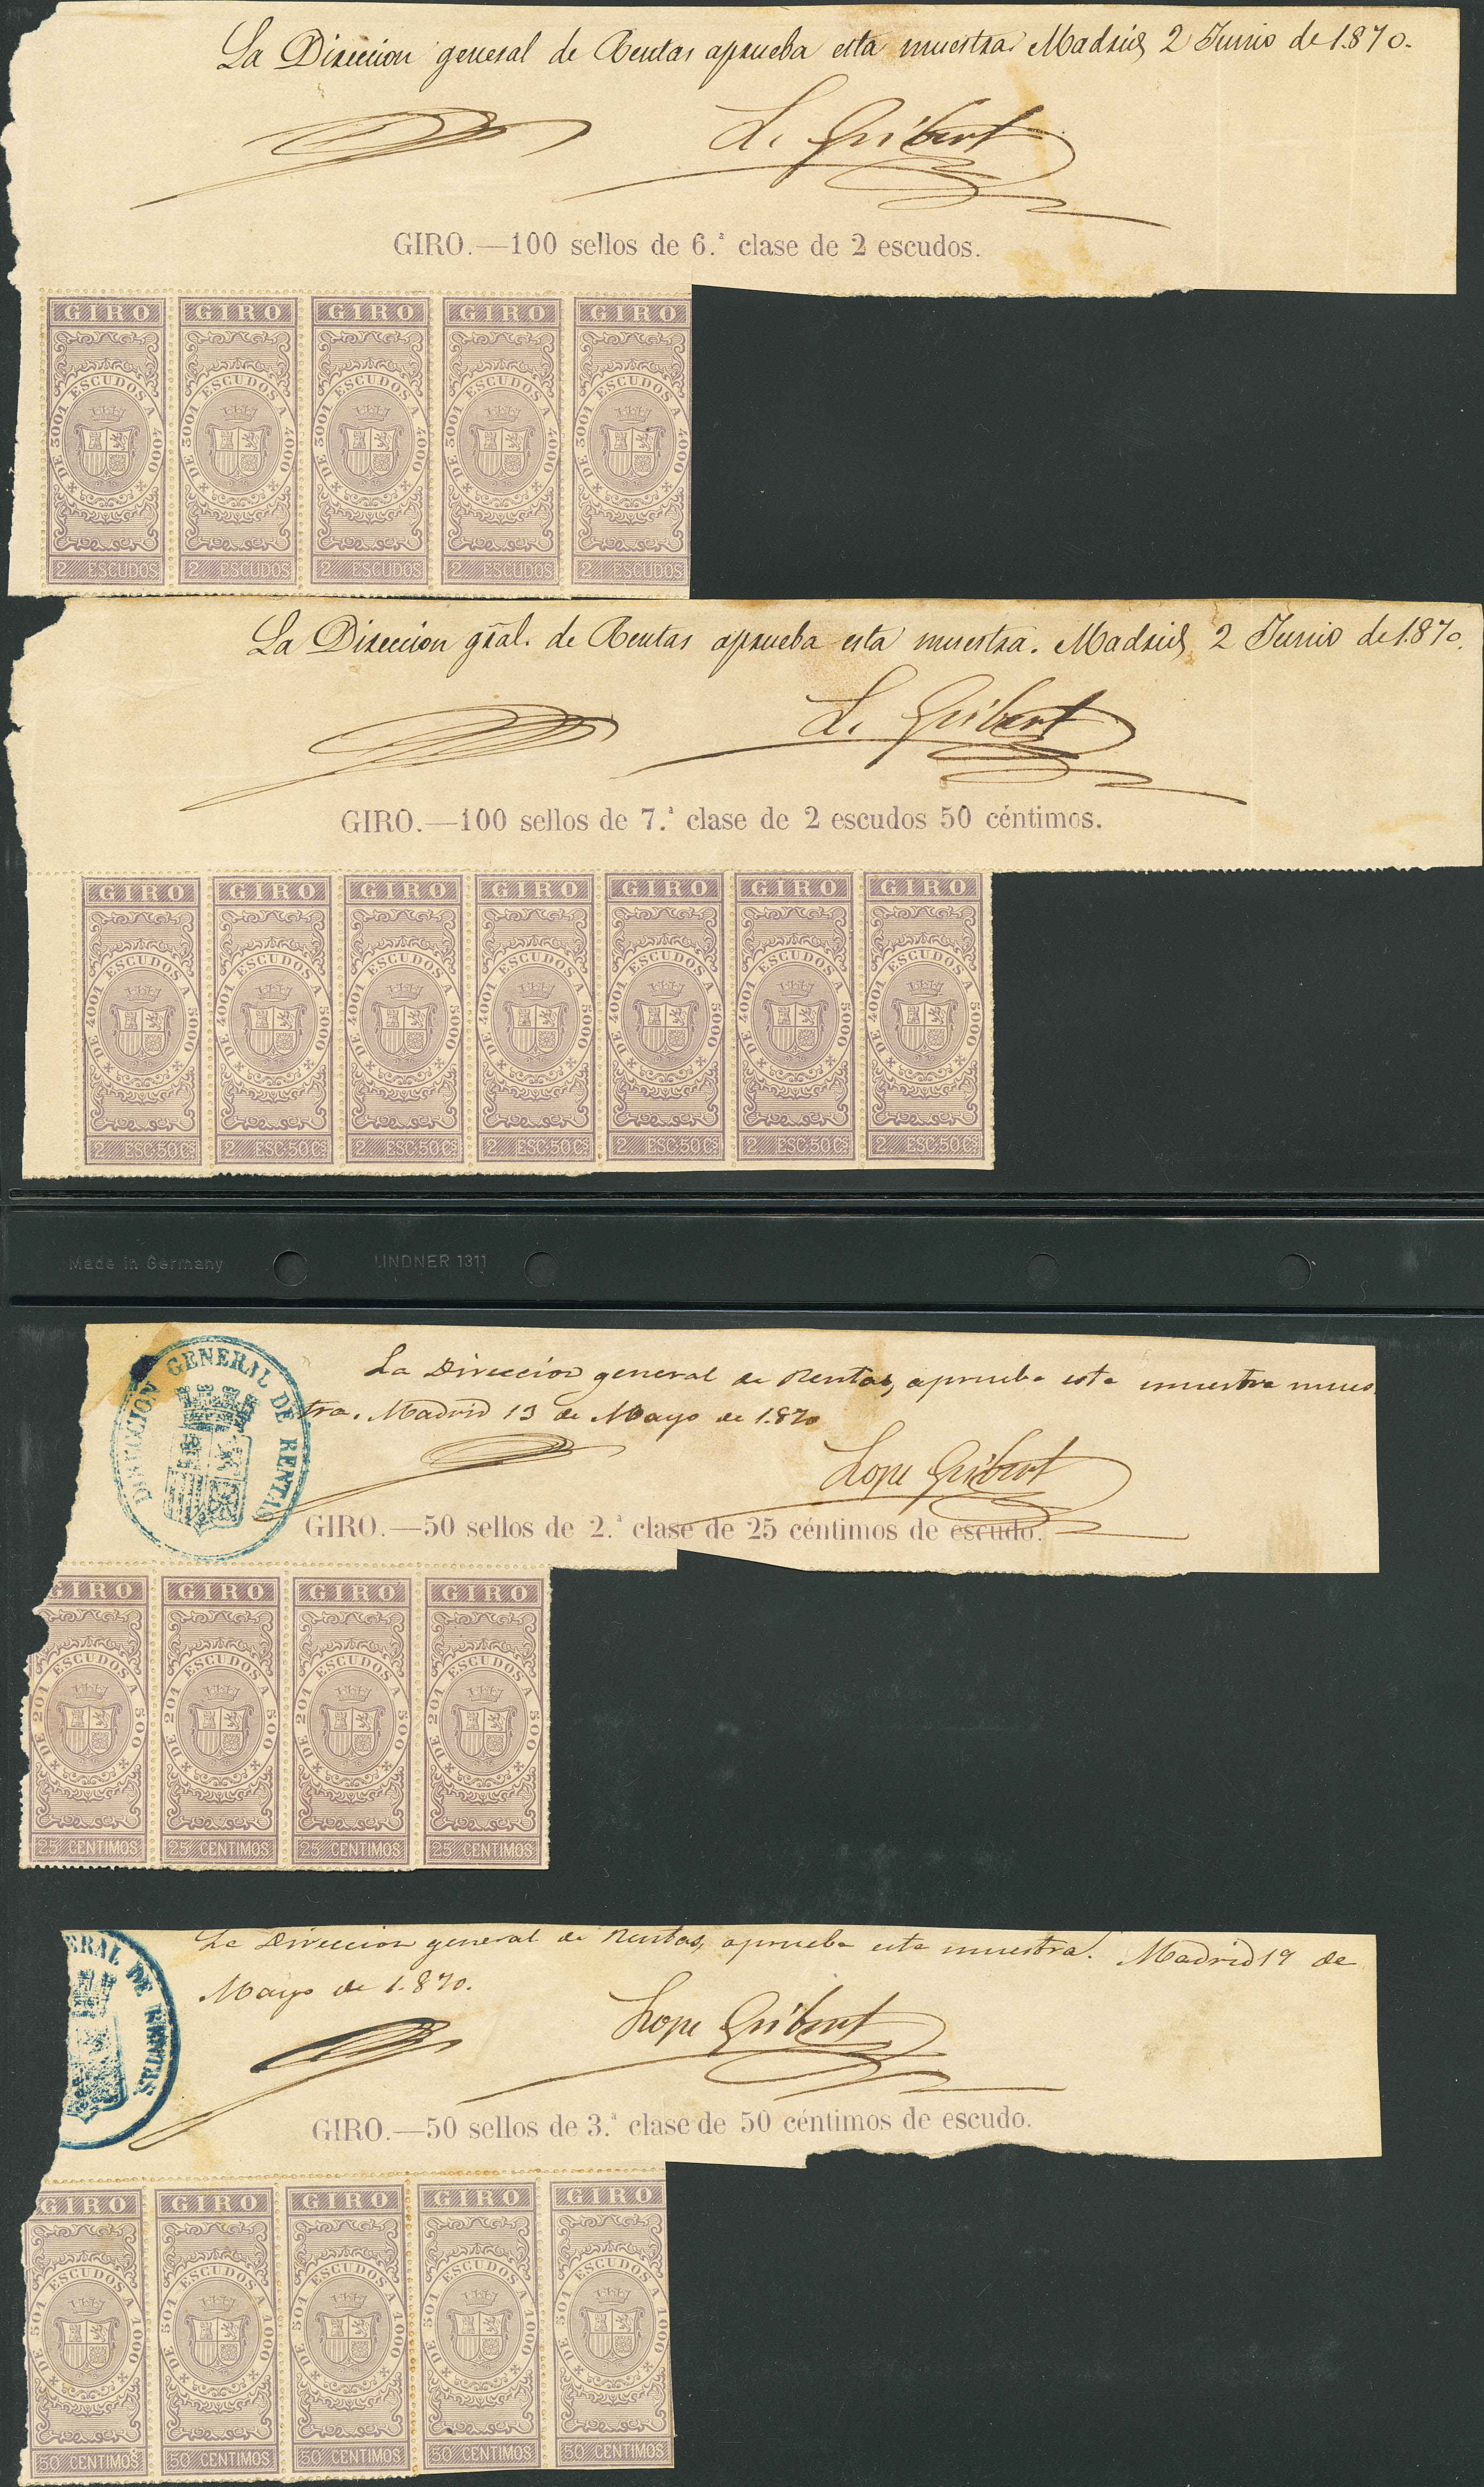 La Direccion general de Rentas aprueba esta muestra. Madrid 2 Junio de 1.870.
L. Gribert
GIRO.—100 sellos de 6.ª clase de 2 escudos.
GIRO GIRO GIRO GIRO GIRO
DE 3001 ESCUDOS A 4000 DE 3001 ESCUDOS A 4000 DE 3001 ESCUDOS A 4000 DE 3001 ESCUDOS A 4000 DE 3001 ESCUDOS A 4000
2 ESCUDOS 2 ESCUDOS 2 ESCUDOS 2 ESCUDOS 2 ESCUDOS
La Direccion gral. de Rentas aprueba esta muestra. Madrid, 2 Junio de 1.870.
L. Gribert
GIRO.—100 sellos de 7.ª clase de 2 escudos 50 céntimos.
GIRO GIRO GIRO GIRO GIRO GIRO GIRO
DE 4001 ESCUDOS A 5000 DE 4001 ESCUDOS A 5000 DE 4001 ESCUDOS A 5000 DE 4001 ESCUDOS A 5000 DE 4001 ESCUDOS A 5000 DE 4001 ESCUDOS A 5000 DE 4001 ESCUDOS A 5000
2 ESC.50Cs 2 ESC.50Cs 2 ESC.50Cs 2 ESC.50Cs 2 ESC.50Cs 2 ESC.50Cs 2 ESC.50Cs
Made in Germany LINDNER 1311
DIRECCION GENERAL DE RENTAS
La Direccion general de Rentas, aprueba esta muestra mues
tra. Madrid 13 de Mayo de 1.870
Lope Gribert
GIRO.—50 sellos de 2.ª clase de 25 céntimos de escudo.
GIRO GIRO GIRO GIRO
DE 201 ESCUDOS A 500 DE 201 ESCUDOS A 500 DE 201 ESCUDOS A 500 DE 201 ESCUDOS A 500
25 CENTIMOS 25 CENTIMOS 25 CENTIMOS 25 CENTIMOS
ERAL DE RENTAS
La Direccion general de Rentas, aprueba esta muestra. Madrid 19 de
Mayo de 1.870.
Lope Gribert
GIRO.—50 sellos de 3.ª clase de 50 céntimos de escudo.
GIRO GIRO GIRO GIRO GIRO
DE 501 ESCUDOS A 1000 DE 501 ESCUDOS A 1000 DE 501 ESCUDOS A 1000 DE 501 ESCUDOS A 1000 DE 501 ESCUDOS A 1000
50 CENTIMOS 50 CENTIMOS 50 CENTIMOS 50 CENTIMOS 50 CENTIMOS